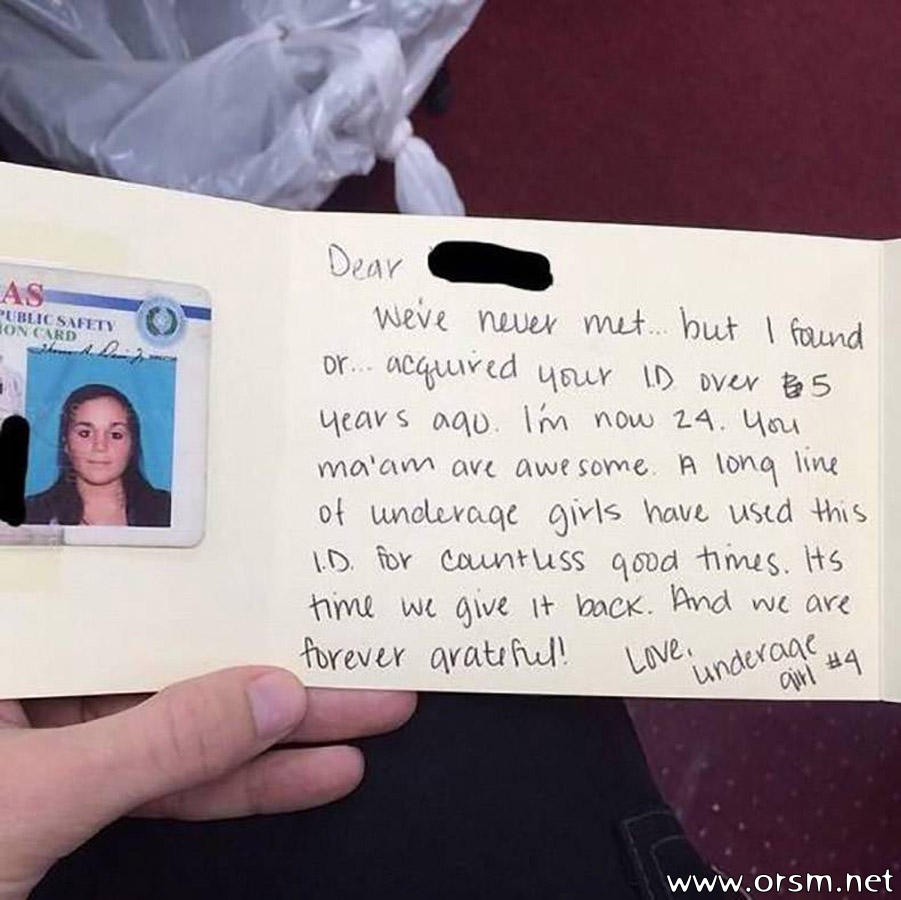 AS
PUBLIC SAFETY
ION CARD
Dear
We've never met... but I found
or... acquired your I.D over 5
years ago. I'm now 24. You
ma'am are awesome. A long line
of underage girls have used this
I.D. for countless good times. Its
time we give it back. And we are
forever grateful!
Love,
underage
girl #4
www.orsm.net